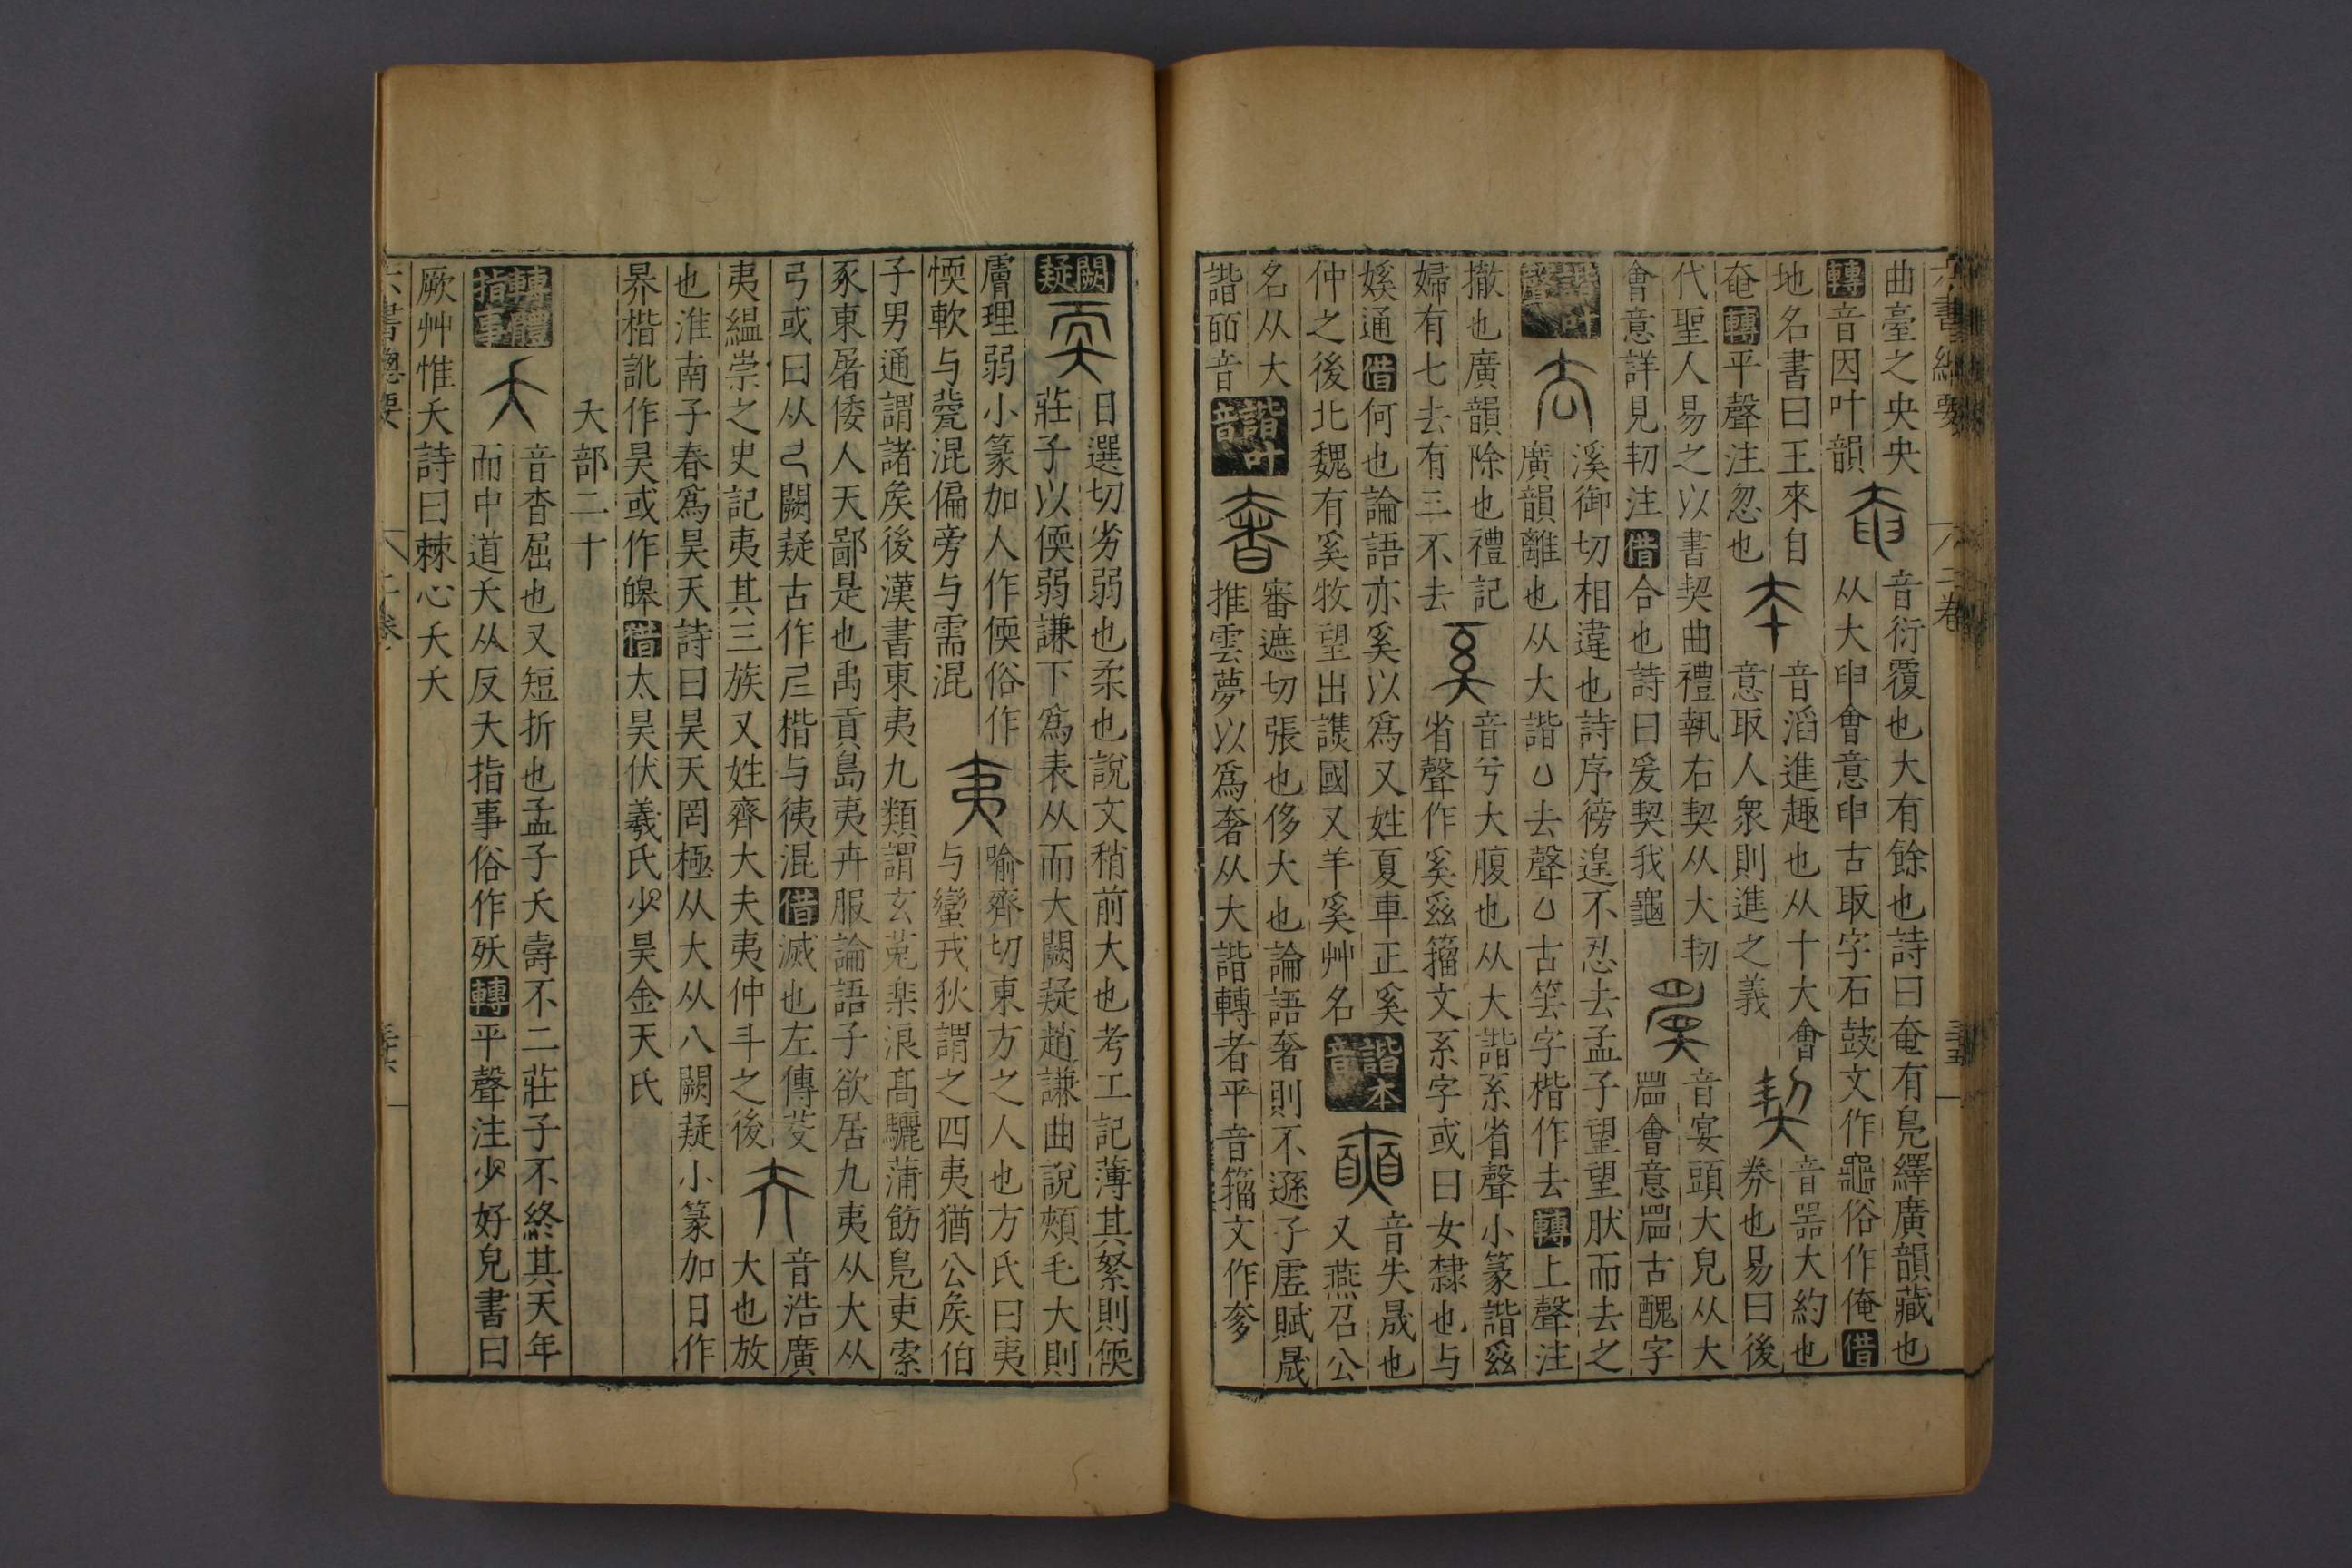 六書總要
二卷
三十五
曲臺之央央
轉音因叶韻
音衍覆也大有餘也詩曰奄有鳧繹廣韻藏也
从大申會意申古取字石鼓文作龝俗作俺借
地名書曰王來自
奄轉平聲注忽也
音滔進趣也从十大會
意取人衆則進之義
音器大約也
券也易曰後
代聖人易之以書契曲禮執右契从大㓞
會意詳見㓞注借合也詩曰爰契我龜
音宴頭大皃从大
㗊會意㗊古醜字
諧叶聲
溪御切相違也詩序徬遑不忍去孟子望望肰而去之
廣韻離也从大諧凵去聲凵古筶字楷作去轉上聲注
撤也廣韻除也禮記
婦有七去有三不去
音兮大腹也从大諧系省聲小篆諧㕕
省聲作奚㕕籀文系字或曰女隸也与
媙通借何也論語亦奚以爲又姓夏車正奚
仲之後北魏有奚牧望出譙國又羊奚艸名
諧本音
音失晟也
又燕召公
名从大
諧皕音
諧叶音
審遮切張也侈大也論語奢則不遜子虛賦晟
推雲夢以爲奢从大諧轉者平音籀文作奓
闕疑
日選切劣弱也柔也說文稍前大也考工記薄其帤則偄
莊子以偄弱謙下爲表从而大闕疑趙謙曲說頰毛大則
膚理弱小篆加人作偄俗作
愞軟与甍混偏旁与需混
喻齊切東方之人也方氏曰夷
与蠻戎狄謂之四夷猶公矦伯
子男通謂諸矦後漢書東夷九類謂玄菟樂浪高驪蒲飭鳧吏索
豕東屠倭人天鄙是也禹貢島夷卉服論語子欲居九夷从大从
弓或曰从弓闕疑古作𡰥楷与㣻混借滅也左傳芟
夷緼崇之史記夷其三族又姓齊大夫夷仲斗之後
音浩廣
大也放
也淮南子春爲昊天詩曰昊天罔極从大从八闕疑小篆加日作
昦楷訛作昊或作皡借太昊伏羲氏少昊金天氏
夭部二十
轉體指事
音杳屈也又短折也孟子夭壽不二莊子不終其天年
而中道夭从反夨指事俗作殀轉平聲注少好皃書曰
厥艸惟夭詩曰棘心夭夭
六書總要
二卷
三十六